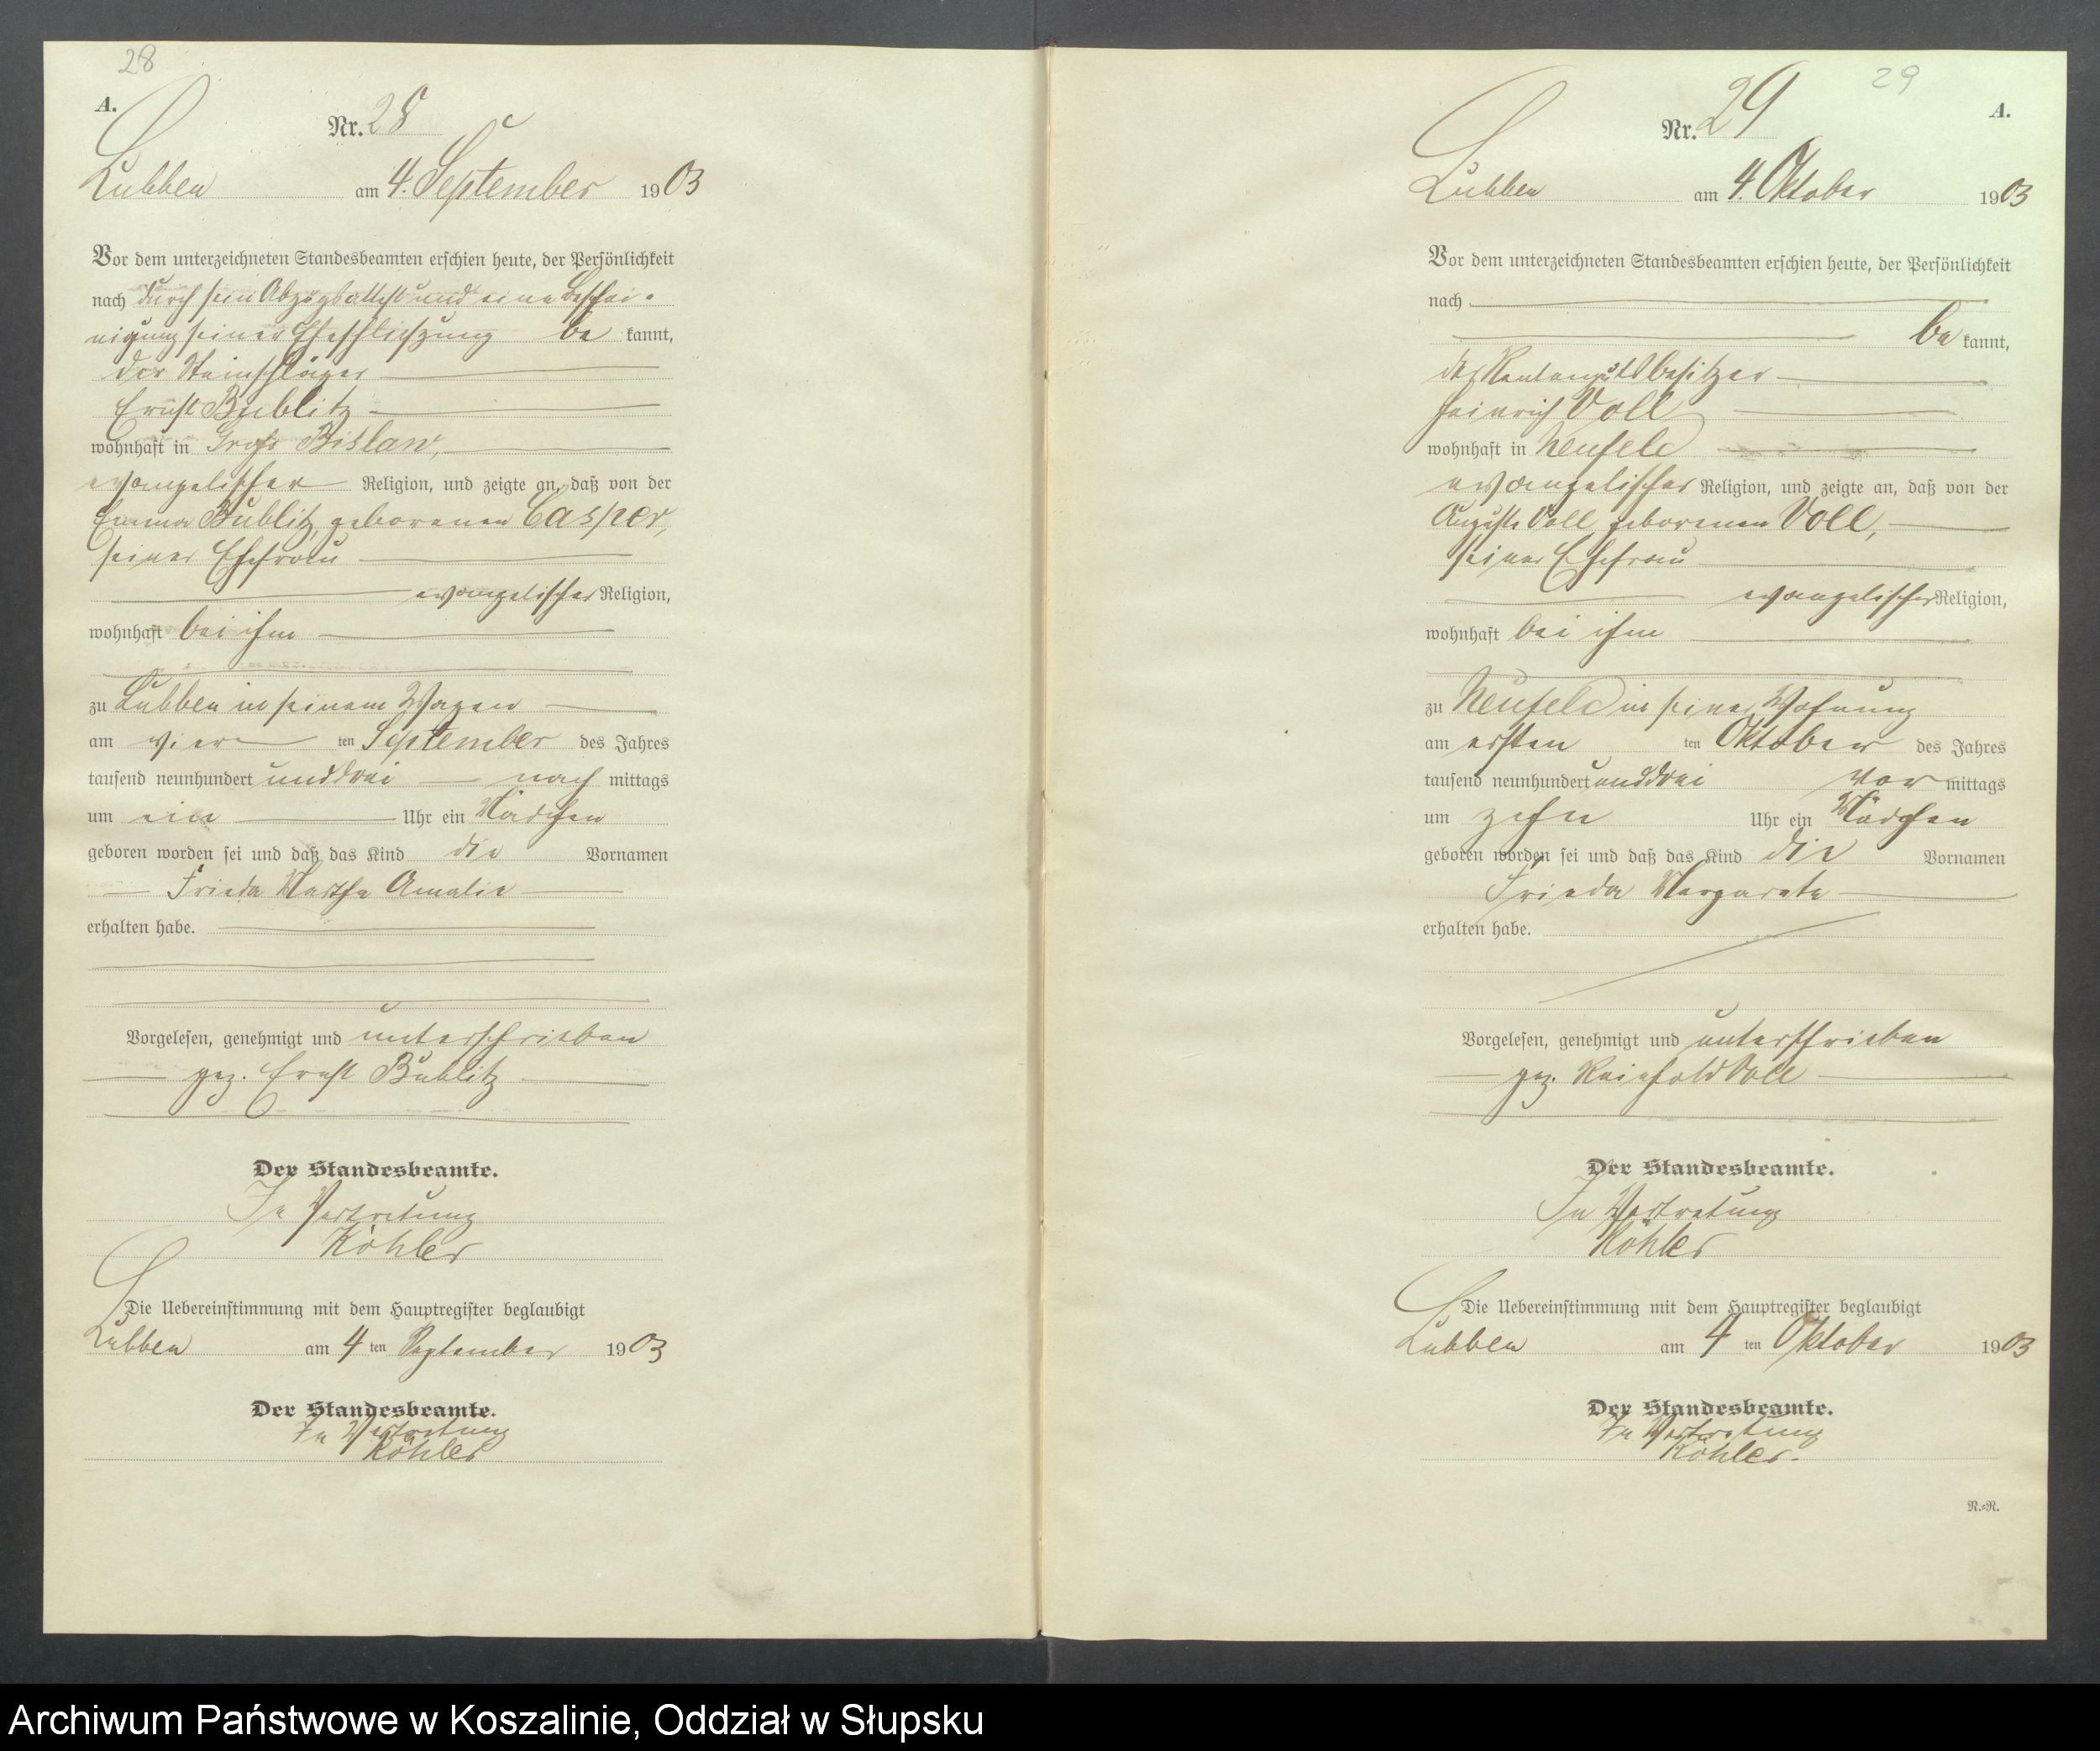 28
A.
Nr. 28
Lubben am 4. September 1903
Vor dem unterzeichneten Standesbeamten erschien heute, der Persönlichkeit
nach durch sein Abzugsattest und eine Beschei-
nigung seiner Eheschließung be kannt,
der Steinschläger
Ernst Bublitz
wohnhaft in Groß Bislaw,
evangelischer Religion, und zeigte an, daß von der
Emma Bublitz, geborenen Casper,
seiner Ehefrau
evangelischer Religion,
wohnhaft bei ihm
zu Lubben in seinem Wagen
am vier ten September des Jahres
tausend neunhundert unddrei nach mittags
um ein Uhr ein Mädchen
geboren worden sei und daß das Kind die Vornamen
Frieda Martha Amalie
erhalten habe.
Vorgelesen, genehmigt und unterschrieben
gez. Ernst Bublitz
Der Standesbeamte.
In Vertretung
Köhler
Die Uebereinstimmung mit dem Hauptregister beglaubigt
Lubben am 4 ten September 1903
Der Standesbeamte.
In Vertretung
Köhler
29
A.
Nr. 29
Lubben am 4. Oktober 1903
Vor dem unterzeichneten Standesbeamten erschien heute, der Persönlichkeit
nach
be kannt,
der Rentengutsbesitzer
Heinrich Voll
wohnhaft in Neufeld
evangelischer Religion, und zeigte an, daß von der
Auguste Voll geborenen Voll,
seiner Ehefrau
evangelischer Religion,
wohnhaft bei ihm
zu Neufeld in seiner Wohnung
am ersten ten Oktober des Jahres
tausend neunhundert unddrei vor mittags
um zehn Uhr ein Mädchen
geboren worden sei und daß das Kind die Vornamen
Frieda Margarete
erhalten habe.
Vorgelesen, genehmigt und unterschrieben
gez. Reinhold Voll
Der Standesbeamte.
In Vertretung
Köhler
Die Uebereinstimmung mit dem Hauptregister beglaubigt
Lubben am 4 ten Oktober 1903
Der Standesbeamte.
In Vertretung
Köhler.
N.=R.
Archiwum Państwowe w Koszalinie, Oddział w Słupsku